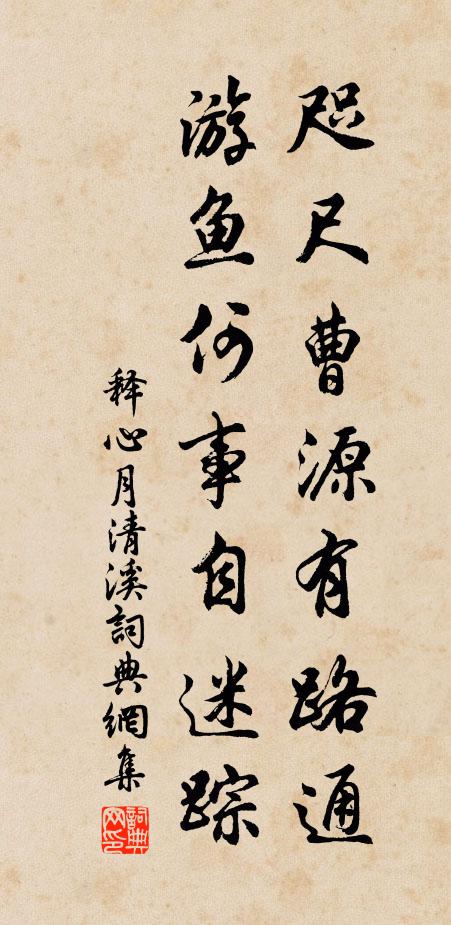 咫尺曹源有路通
游鱼何事自迷踪
释心月清溪詞典網集
詞典网印